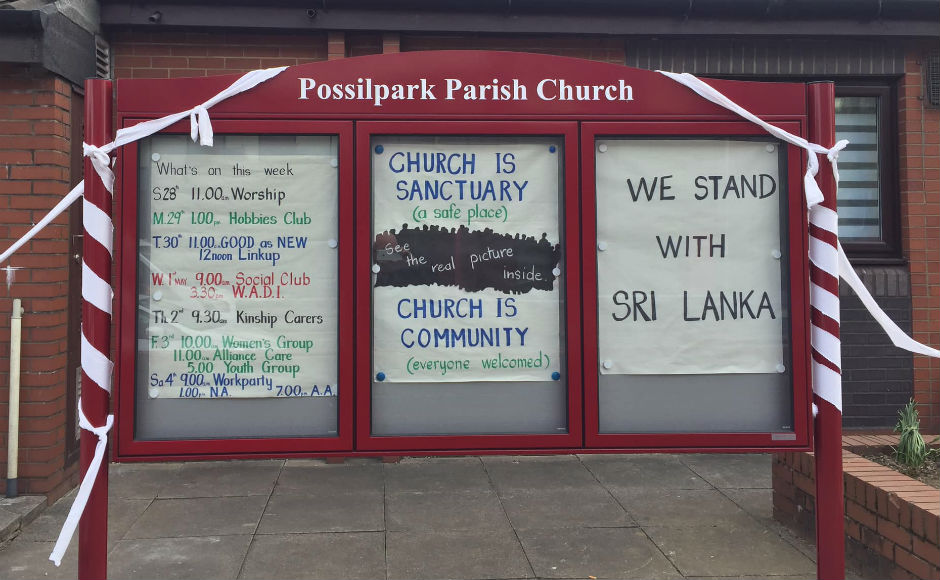 Possilpark Parish Church
What's on this week
S.28th 11.00am Worship
M.29th 1.00pm Hobbies Club
T.30th 11.00am GOOD as NEW
12noon Linkup
W.1st MAY 9.00am Social Club
3.30pm W.A.D.I.
Th.2nd 9.30am Kinship Carers
F.3rd 10.00am Women's Group
11.00am Alliance Care
5.00 Youth Group
Sa.4th 9.00am Workparty
1.00pm N.A. 7.00pm A.A.
CHURCH IS
SANCTUARY
(a safe place)
See
the real picture
inside.
CHURCH IS
COMMUNITY
(everyone welcomed)
WE STAND
WITH
SRI LANKA